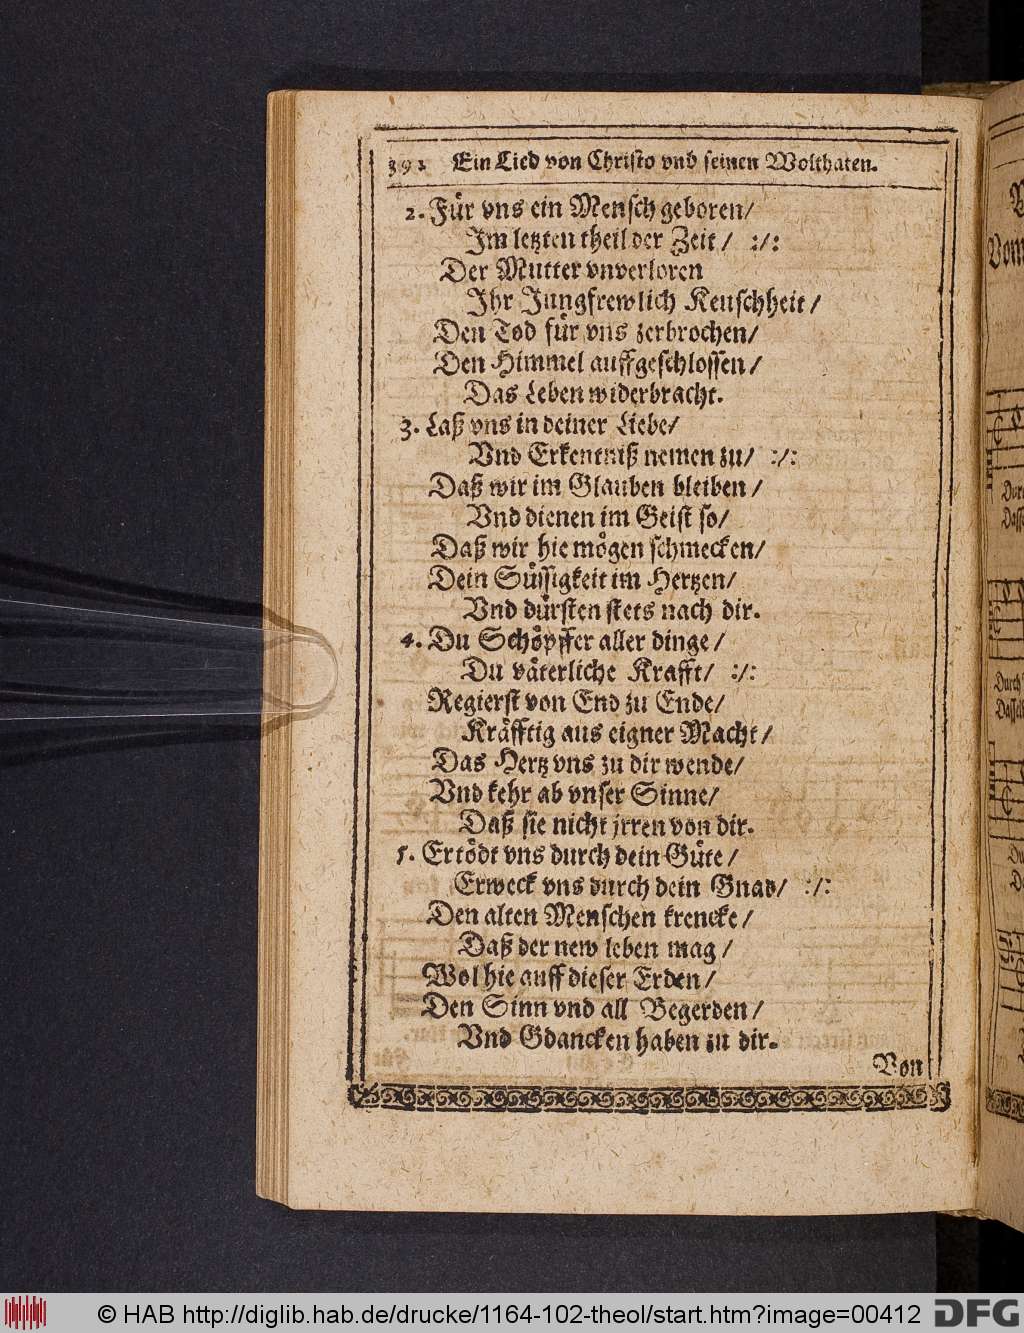 392 Ein Lied von Christo vnd seinen Wolthaten.
2. Für vns ein Mensch geboren/
Im letzten theil der Zeit / :/:
Der Mutter vnverloren
Ihr Jungfrewlich Keuschheit /
Den Tod für vns zerbrochen/
Den Himmel auffgeschlossen/
Das Leben widerbracht.
3. Laß vns in deiner Liebe/
Vnd Erkentniß nemen zu/ :/:
Daß wir im Glauben bleiben /
Vnd dienen im Geist so/
Daß wir hie mögen schmecken/
Dein Süssigkeit im Hertzen/
Vnd dürsten stets nach dir.
4. Du Schöpffer aller dinge /
Du väterliche Krafft/ :/:
Regierst von End zu Ende/
Kräfftig aus eigner Macht /
Das Hertz vns zu dir wende/
Vnd kehr ab vnser Sinne/
Daß sie nicht jrren von dir.
5. Ertödt vns durch dein Güte /
Erweck vns durch dein Gnad/ :/:
Den alten Menschen krencke /
Daß der new leben mag /
Wol hie auff dieser Erden /
Den Sinn vnd all Begerden /
Vnd Gdancken haben zu dir.
Von
© HAB http://diglib.hab.de/drucke/1164-102-theol/start.htm?image=00412
DFG